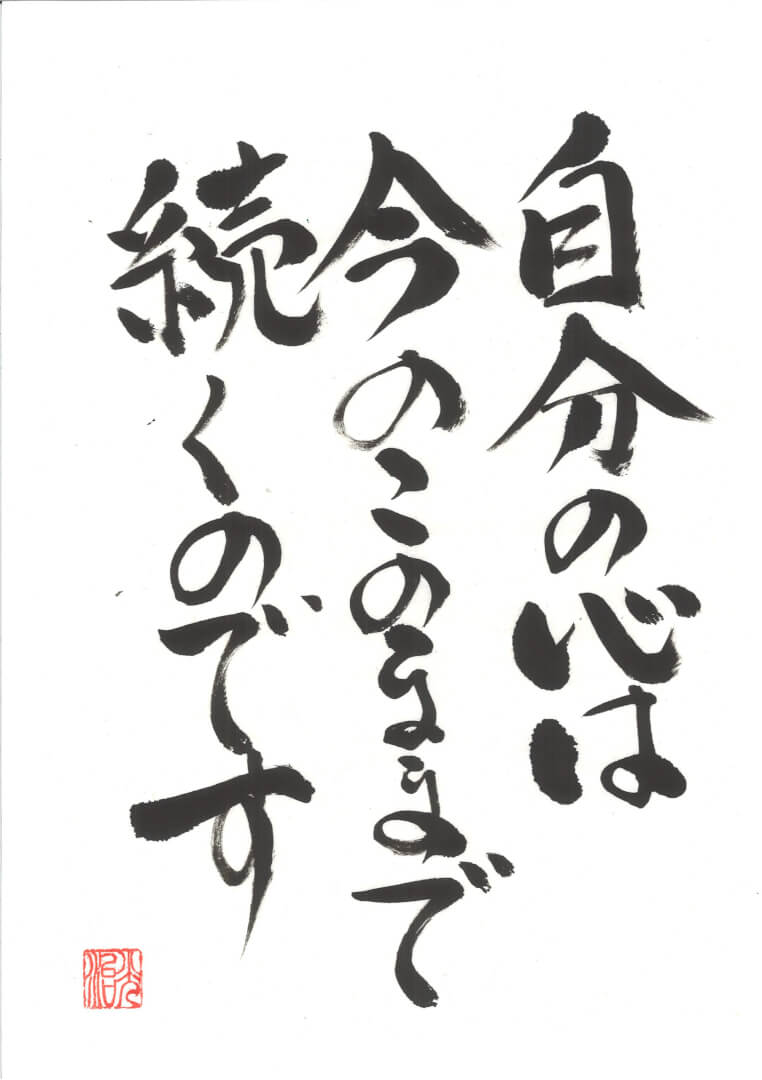 自分の心は
今のこのままで
続くのです